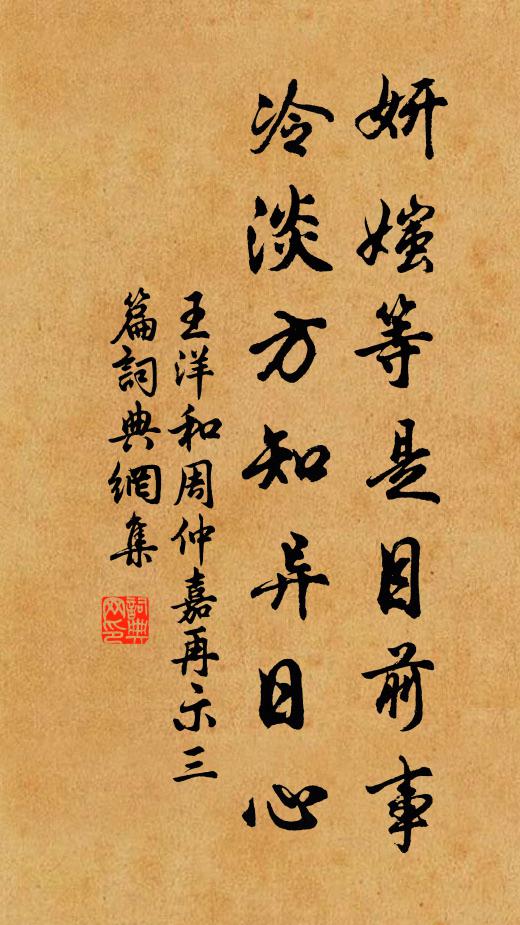 妍媸等是目前事
冷淡方知异日心
王洋和周仲嘉再示三
篇詞典網集
詞典
网印